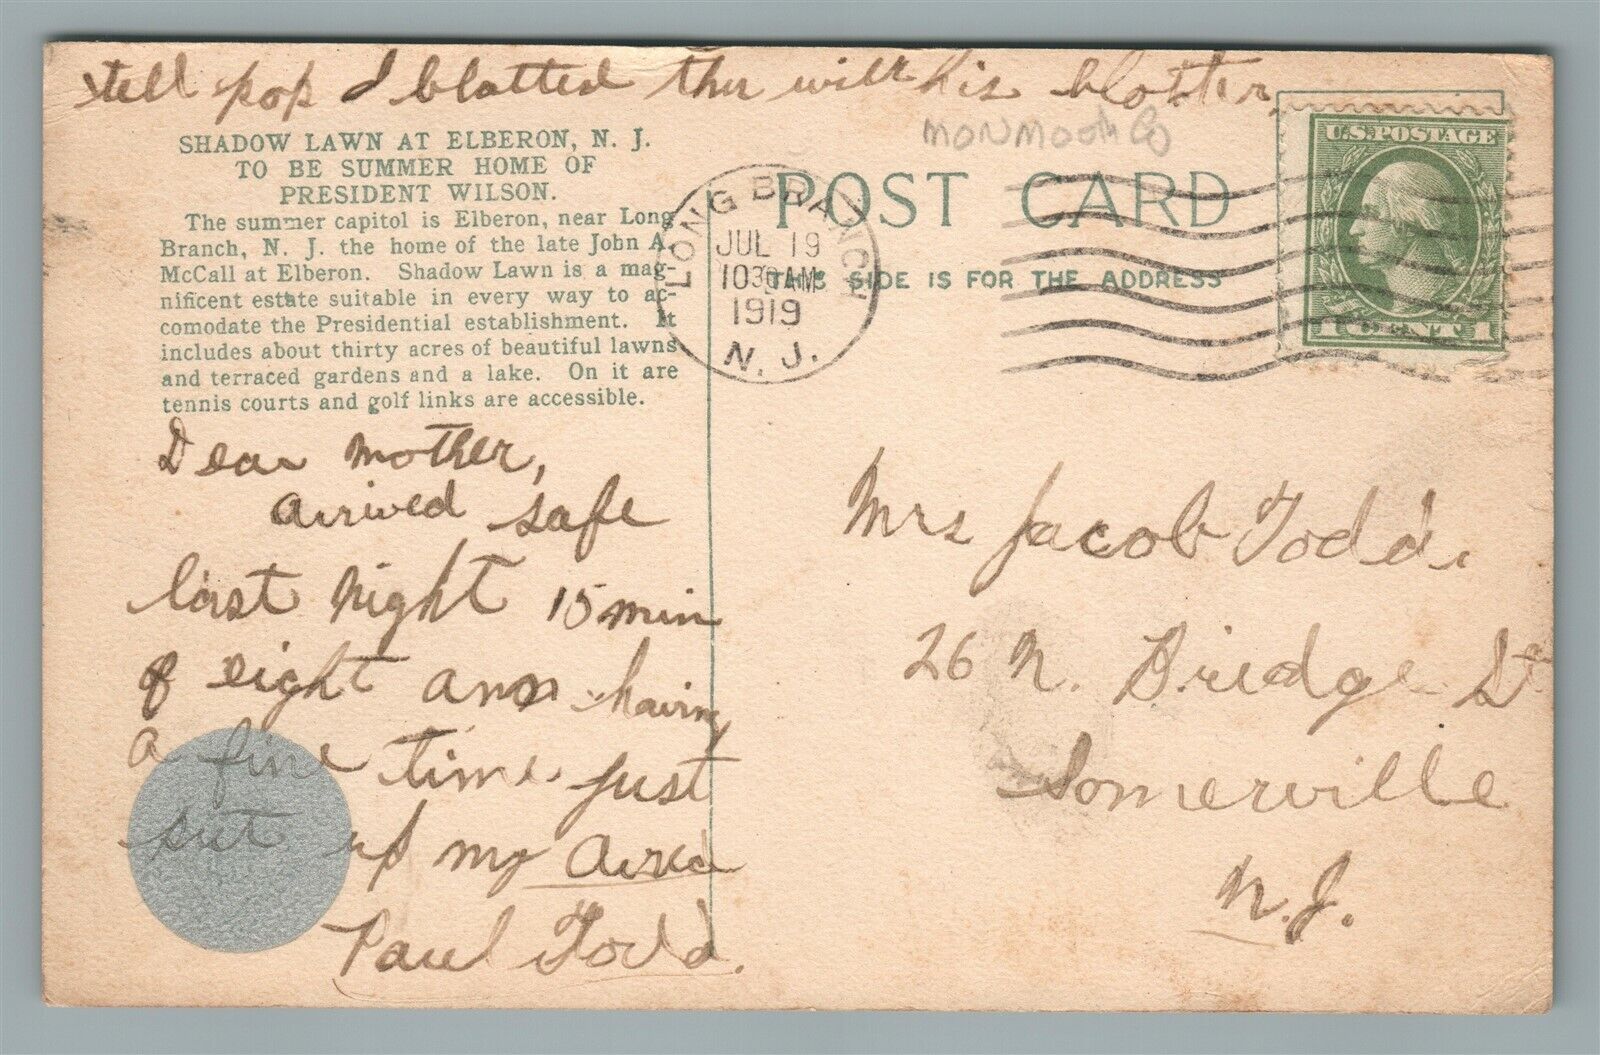 tell pop I blotted this with his blotter,
MONMOOth Co
SHADOW LAWN AT ELBERON, N. J.
TO BE SUMMER HOME OF
PRESIDENT WILSON.
The summer capitol is Elberon, near Long
Branch, N. J. the home of the late John A.
McCall at Elberon. Shadow Lawn is a mag-
nificent estate suitable in every way to ac-
comodate the Presidential establishment. It
includes about thirty acres of beautiful lawns
and terraced gardens and a lake. On it are
tennis courts and golf links are accessible.
POST CARD
THIS SIDE IS FOR THE ADDRESS
LONG BRANCH
JUL 19
1030AM
1919
N. J.
U.S. POSTAGE
1 CENT 1
Dear Mother,
arrived safe
last night 15 min
of eight am having
a fine time just
set up my
Paul Todd.
Mrs Jacob Todd.
26 N. Bridge St
Somerville
N. J.